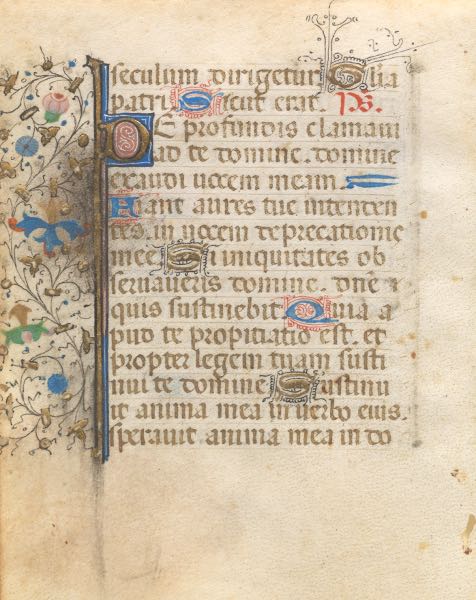 seculum dirigetur Glia
patri Sicut erat. Ps.
DE profundis clamaui
ad te domine. domine
exaudi uocem meam
Fiant aures tue intenden
tes. in uocem deprecationis
mee Si iniquitates ob
seruaueris domine. dne
quis sustinebit Quia a
pud te propitiatio est. et
propter legem tuam susti
nui te domine Sustinu
it anima mea in uerbo eius.
sperauit anima mea in do